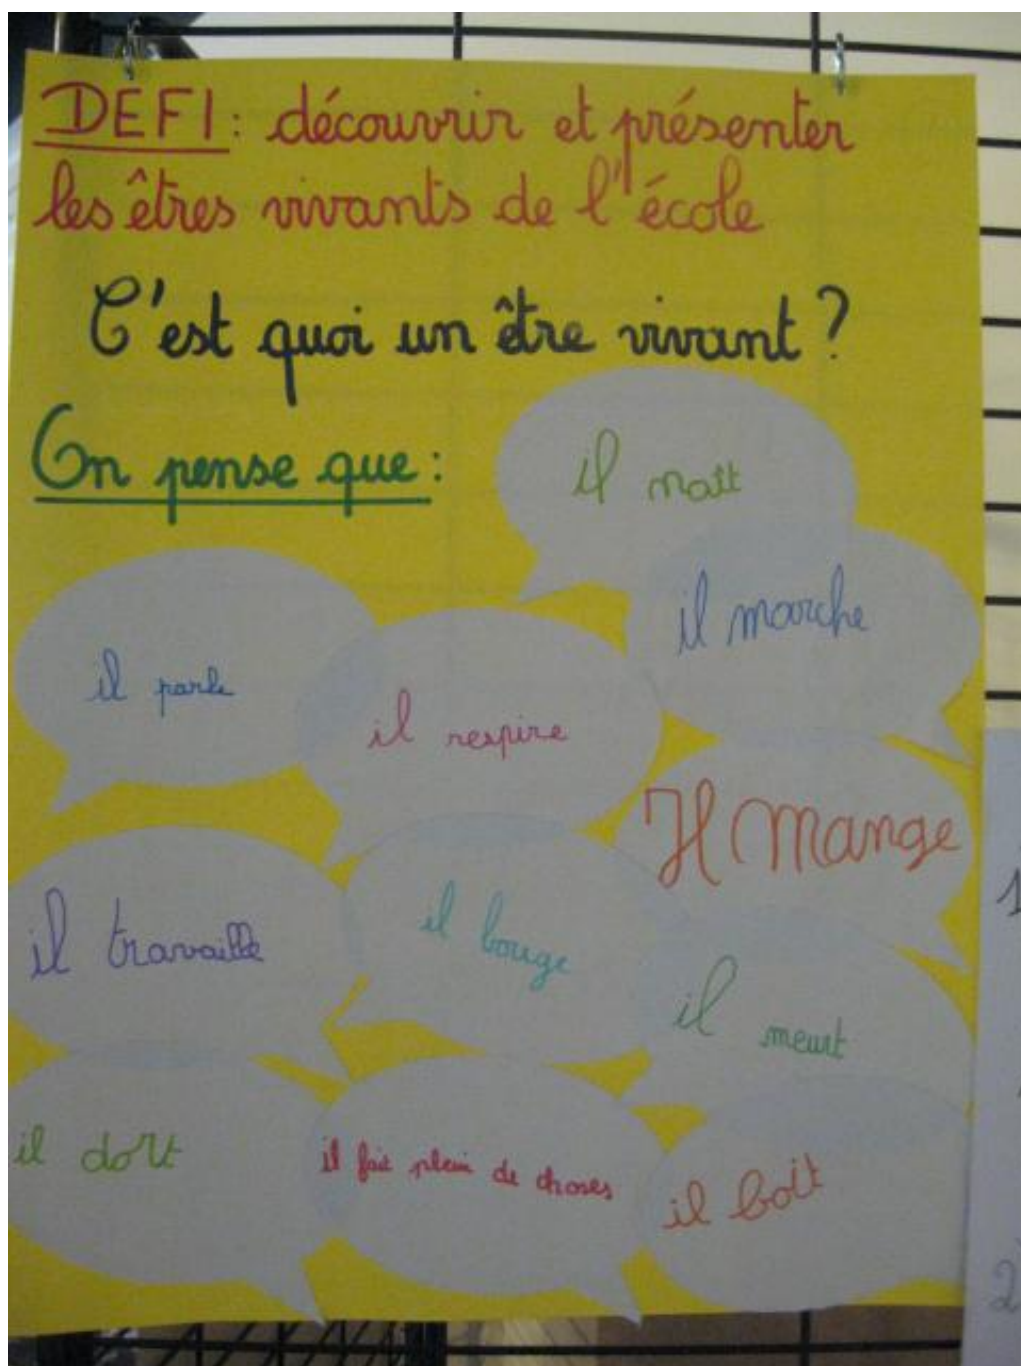 DEFI : découvrir et présenter
les êtres vivants de l'école
C'est quoi un être vivant ?
On pense que :
il naît
il marche
il parle
il respire
Il Mange
il travaille
il bouge
il meurt
il dort
il fait plein de choses
il boit
1
2